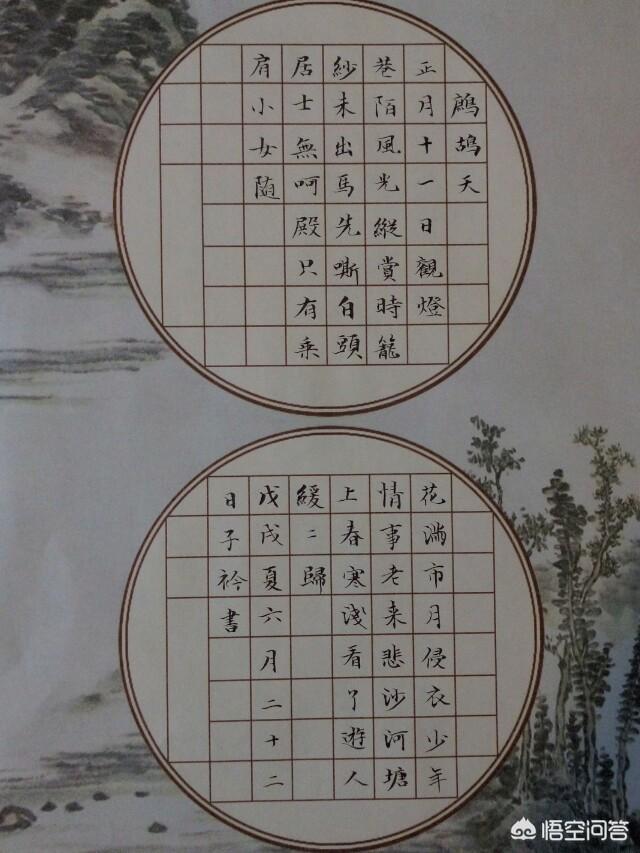 鷓鴣天
正月十一日觀燈
巷陌風光縱賞時籠
紗未出馬先嘶白頭
居士無呵殿只有乘
肩小女隨
花滿市月侵衣少年
情事老来悲沙河塘
上春寒淺看了遊人
緩二歸
戊戌夏六月二十二
日子衿書
悟空问答